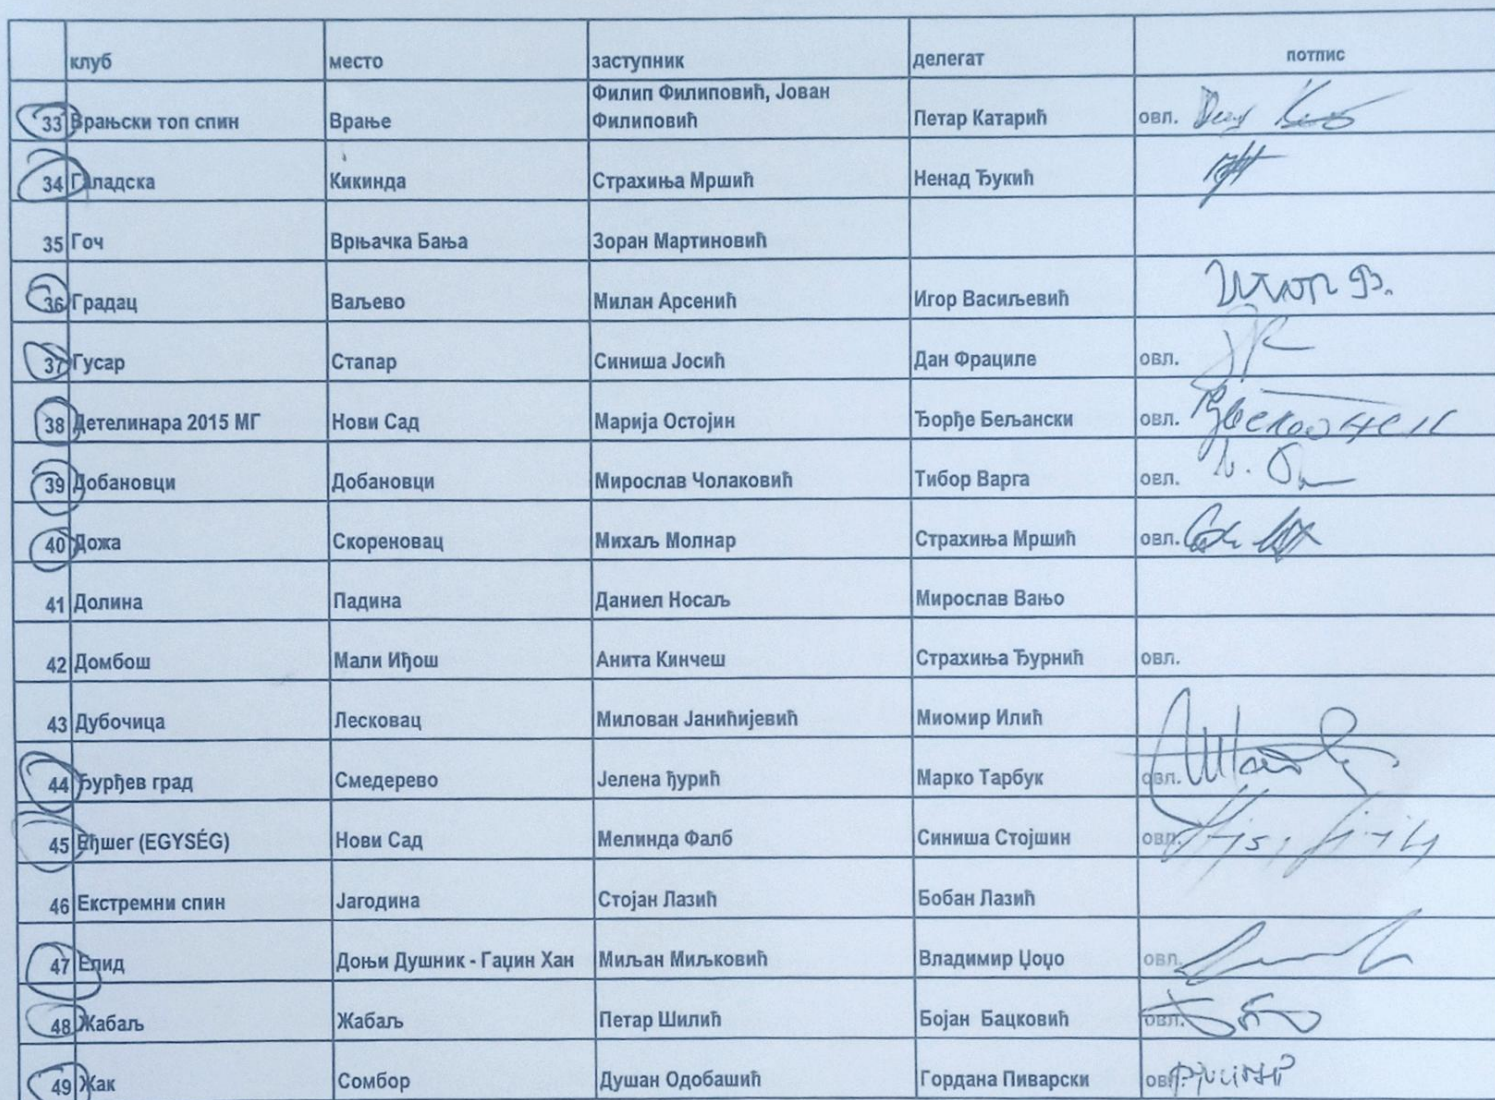 клуб место заступник делегат потпис
33 Врањски топ спин Врање Филип Филиповић, Јован Филиповић Петар Катарић овл.
34 Галадска Кикинда Страхиња Мршић Ненад Ђукић
35 Гоч Врњачка Бања Зоран Мартиновић
36 Градац Ваљево Милан Арсенић Игор Васиљевић
37 Гусар Стапар Синиша Јосић Дан Фрациле овл.
38 Детелинара 2015 МГ Нови Сад Марија Остојин Ђорђе Бељански овл.
39 Добановци Добановци Мирослав Чолаковић Тибор Варга овл.
40 Дожа Скореновац Михаљ Молнар Страхиња Мршић овл.
41 Долина Падина Даниел Носаљ Мирослав Вањо
42 Домбош Мали Иђош Анита Кинчеш Страхиња Ђурнић овл.
43 Дубочица Лесковац Милован Јанићијевић Миомир Илић
44 Ђурђев град Смедерево Јелена ђурић Марко Тарбук овл.
45 Еђшег (EGYSÉG) Нови Сад Мелинда Фалб Синиша Стојшин овл.
46 Екстремни спин Јагодина Стојан Лазић Бобан Лазић
47 Елид Доњи Душник - Гаџин Хан Миљан Миљковић Владимир Џоџо овл.
48 Жабаљ Жабаљ Петар Шилић Бојан Бацковић овл.
49 Жак Сомбор Душан Одобашић Гордана Пиварски овл.